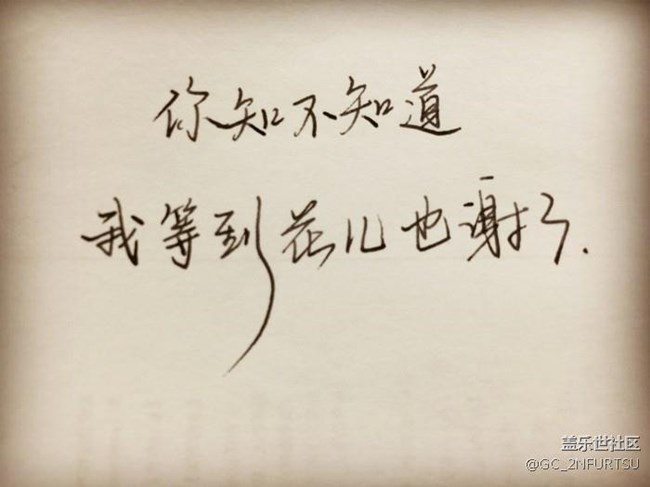 你知不知道
我等到花儿也谢了.
盖乐世社区
@GC_2NFURTSU